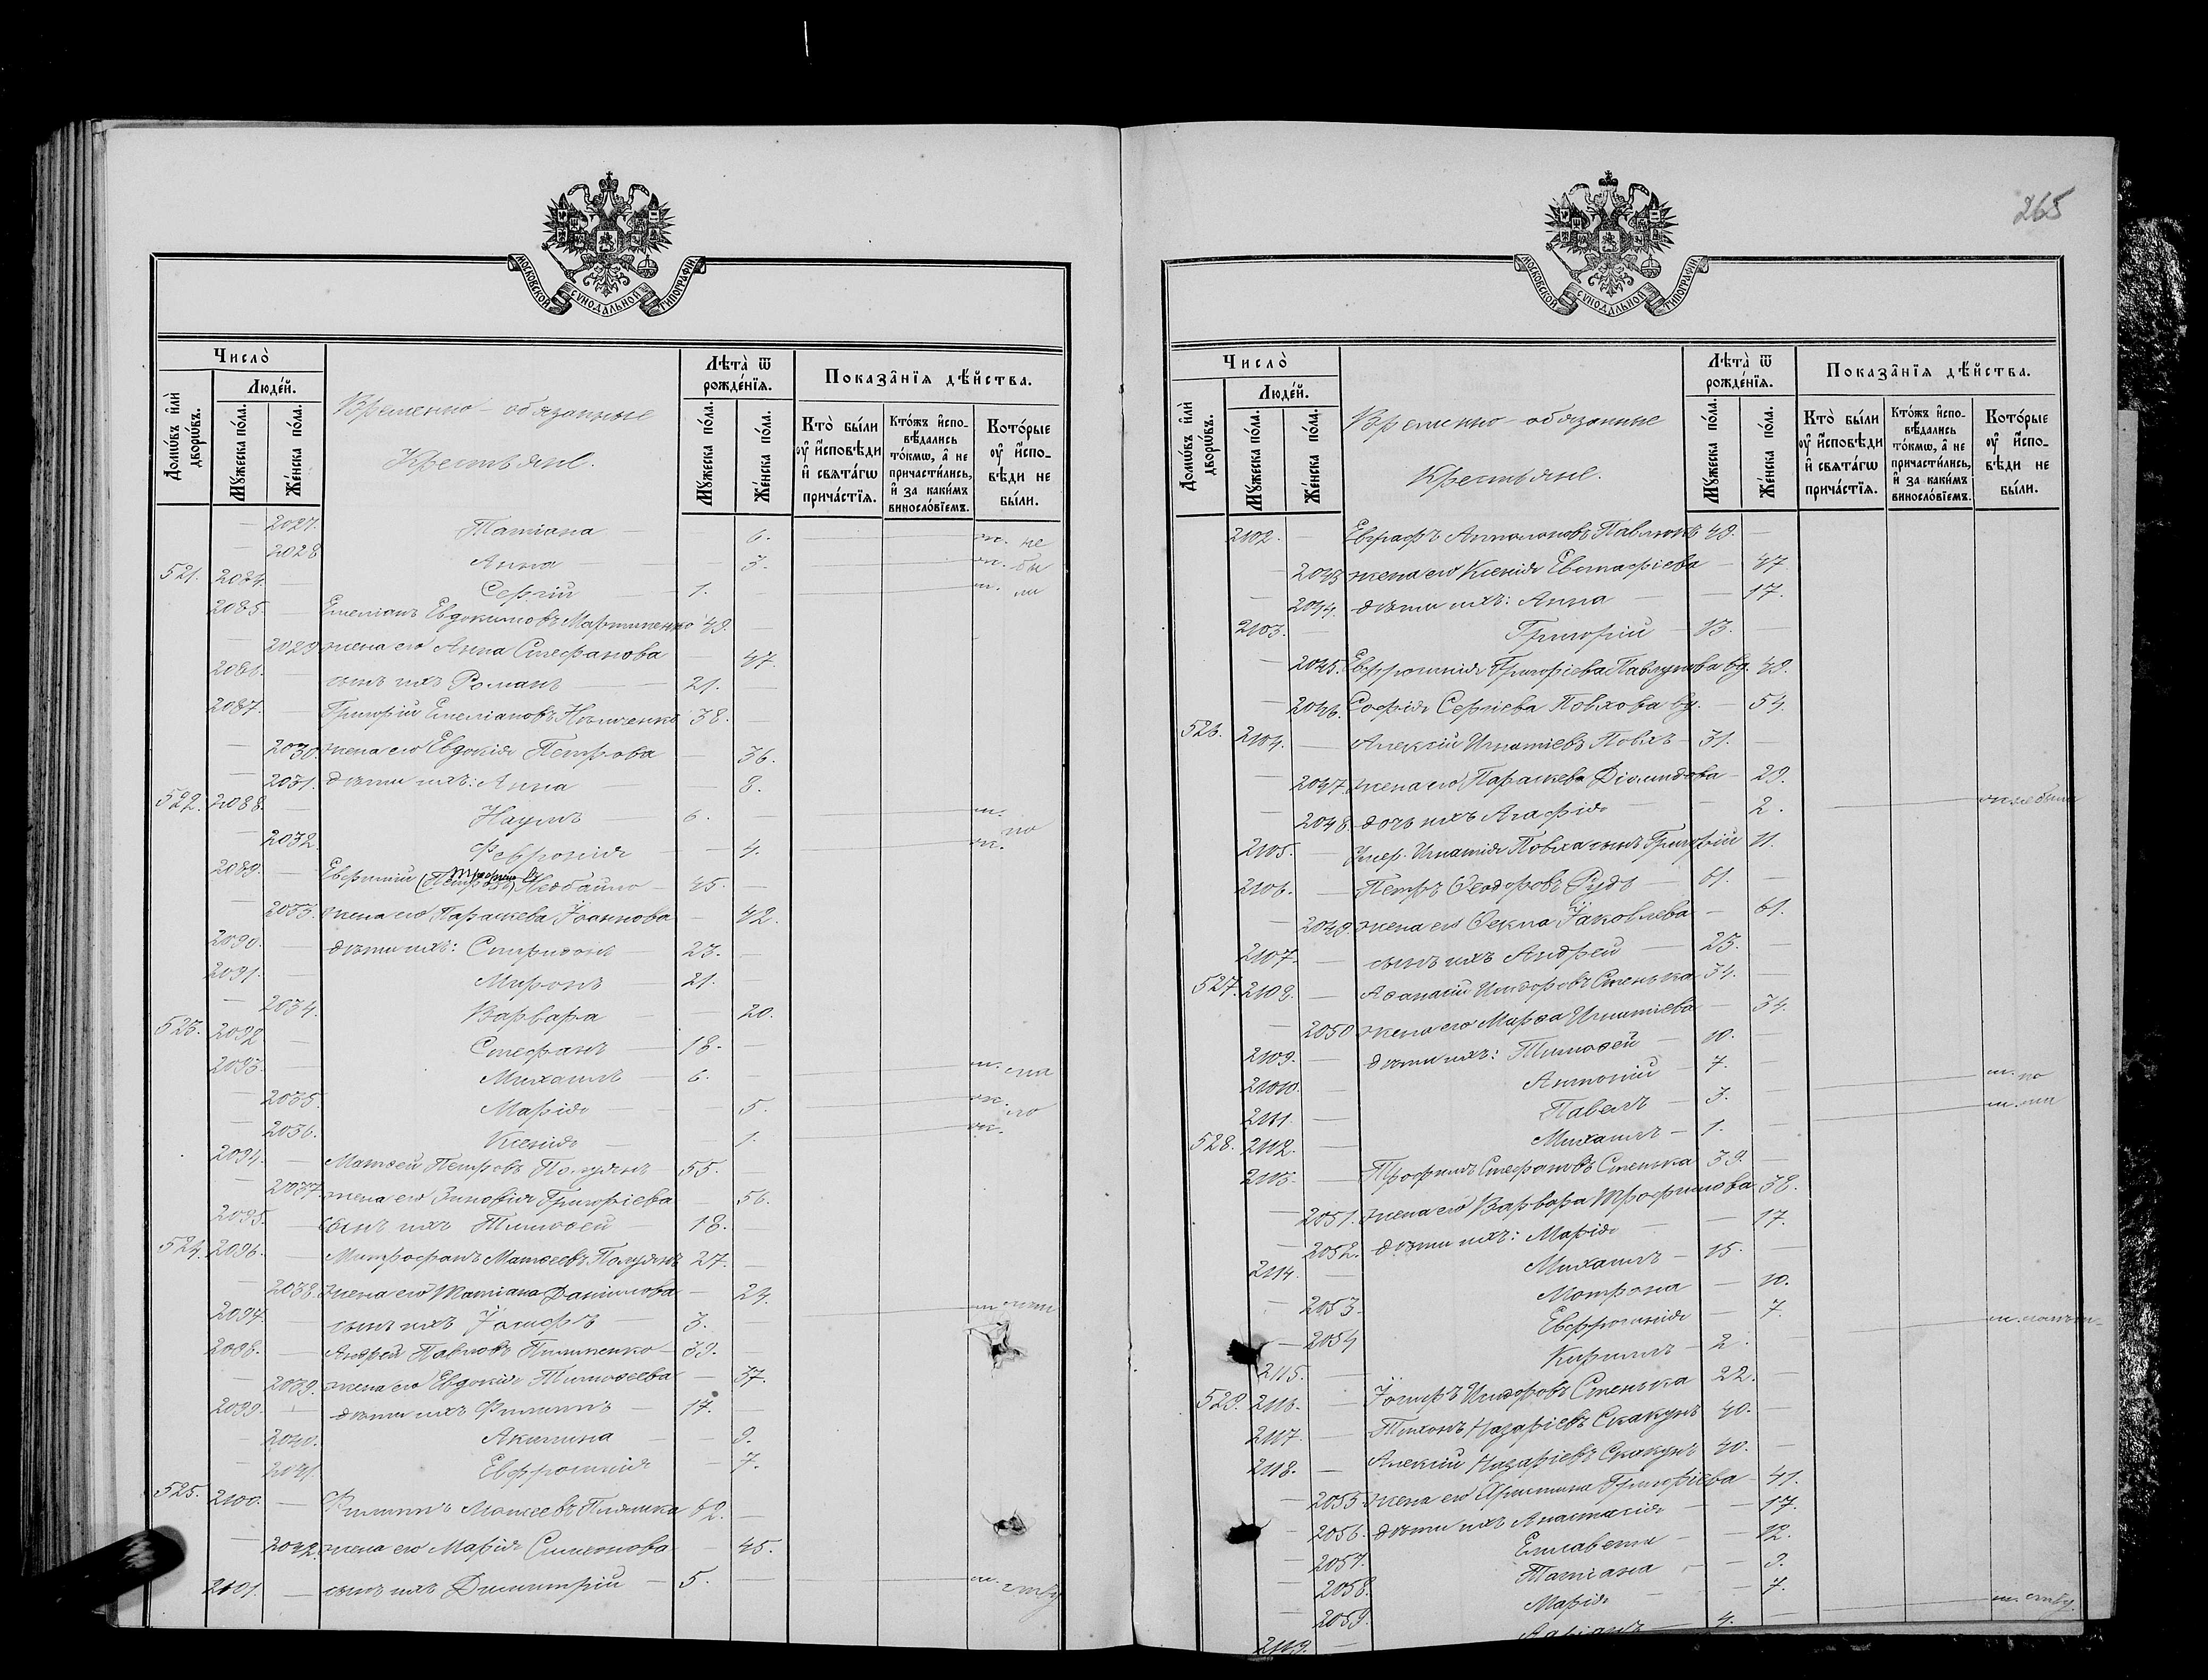 265
МОСКОВСКОЙ СУНОДАЛЬНОЙ ТИПОГРАФІИ
Число̀
Домѡ́въ и҆лѝ дворѡ́въ.
Люде́й.
Мꙋ́жеска по́ла.
Же́нска по́ла.
Временно-обязанные
Крестьяне.
Лѣта̀ ѿ рожде́нїѧ.
Мꙋ́жеска по́ла.
Же́нска по́ла.
Показа̑нїѧ дѣ́йства.
Кто̀ бы́ли оу҆ и҆́сповѣди и҆ свѧта́гѡ прича́стїѧ.
Кто́жъ и҆спо-вѣ́дались то́кмѡ, а҆ не причасти́лись, и҆ за каки́мъ винносло́вїемъ.
Кото́рые оу҆ и҆́спо-вѣди не бы́ли.
— 2027. Татіана — 6. м. не
— 2028 Анна — 3. м. бы
521. 2084. — Сергій 1. — м. ли
2085. — Емеліанъ Евдокимовъ Мартиненко 49. —
— 2029 жена его Анна Стефанова — 47.
2086. — сынъ ихъ Романъ — 21. —
2087. — Григорій Емеліановъ 38. —
— 2030. жена его Евдокія Петрова — 36.
— 2031. дѣти ихъ: Анна — 8.
522. 2088. — Наумъ 6. — м.
— 2032. Февронія — 4. м. по
2089. — Евфимій (Петровъ) Необайло — 45. —
— 2033. жена его Параскева Іоаннова — 42.
2090. — дѣти ихъ: Спиридонъ — 23. —
2091. — Миронъ — 21. —
— 2034. Варвара — 20.
523. 2092 — Стефанъ — 18. —
2093. — Михаилъ — 6. — м.
— 2035. Марія — 5. м. по
— 2036. Ксенія — 1. м.
2094. — Матѳей Петровъ Полудень 55. —
— 2037. жена его Зиновія Григоріева — 56.
2095. — сынъ ихъ Тимоѳей — 18. —
524. 2096. — Митрофанъ Матѳеевъ Полудень 27. —
— 2038. жена его Татіана Данилова — 24.
2097. — сынъ ихъ Іосифъ — 3. — м.
2098. — Андрей Павловъ Пилипенко — 39. —
— 2039. жена его Евдокія Тимоѳеева — 37.
2099. — дѣти ихъ Филиппъ — 17. —
— 2040. Акилина — 9.
— 2041 Евфросинія — 7.
525. 2100. — Филиппъ Моисеевъ 62. —
— 2042. жена его Марія Симеонова — 45.
2101. — сынъ ихъ Димитрій — 5. — м.
МОСКОВСКОЙ СУНОДАЛЬНОЙ ТИПОГРАФІИ
Число̀
Домѡ́въ и҆лѝ дворѡ́въ.
Люде́й.
Мꙋ́жеска по́ла.
Же́нска по́ла.
Временно-обязанные
Крестьяне.
Лѣта̀ ѿ рожде́нїѧ.
Мꙋ́жеска по́ла.
Же́нска по́ла.
Показа̑нїѧ дѣ́йства.
Кто̀ бы́ли оу҆ и҆́сповѣди и҆ свѧта́гѡ прича́стїѧ.
Кто́жъ и҆спо-вѣ́дались то́кмѡ, а҆ не причасти́лись, и҆ за каки́мъ винносло́вїемъ.
Кото́рые оу҆ и҆́спо-вѣди не бы́ли.
2102. — Евграфъ Павлюкъ 49. —
— 2043 жена его Ксенія Евстафіева — 47
— 2044. дѣти ихъ: Анна — 17.
2103. — Григорій — 13. —
— 2045. Евфросинія Григоріева вд. 49.
— 2046. Софія Сергіева Повхова вд. — 54.
526. 2104. — Алексій Игнатіевъ Повхъ — 31. —
— 2047. жена его Параскева Діомидова — 29.
— 2048 дочь ихъ Агафія — 2. м. не были
2105. — Умер. Игнатія Повха сынъ Григорій 11.
2106. — Петръ Ѳеодоровъ Рудь — 61. —
— 2049 жена его Ѳекла Іаковлева — 61.
2107. — сынъ ихъ Андрей — 23. —
527. 2108. — Аѳанасій Исидоровъ Стенька 34. —
— 2050 жена его Марѳа Игнатіева — 34.
2109. — дѣти ихъ: Тимоѳей — 10. —
2110. — Антоній — 7. —
2111. — Павелъ — 3. — м. по
528. 2112. — Михаилъ — 1. — м.
2113. — Трофимъ Стефановъ Стенька 39. —
— 2051. жена его Варвара Трофимова 38.
— 2052. дѣти ихъ: Марія — 17.
2114. — Михаилъ — 15. —
— 2053. Матрона — 10.
— 2054 Евфросинія — 7.
2115. — Кириллъ — 2. — м.
529. 2116. — Іосифъ Исидоровъ Стенька 22. —
2117. — Тихонъ Назаріевъ Скакунъ 40. —
2118. — Алексій Назаріевъ Скакунъ 40. —
— 2055 жена его Христина Григоріева — 41.
— 2056. дѣти ихъ Анастасія — 17.
— 2057. Елисавета — 12.
— 2058. Татіана — 9.
— 2059. Марія — 7.
2119. — 4. — м.